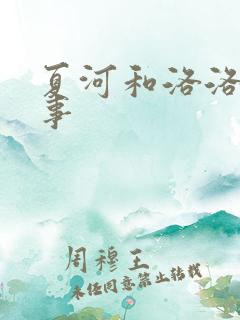 夏河和洛洛
事
周穆王
未经同意禁止转载